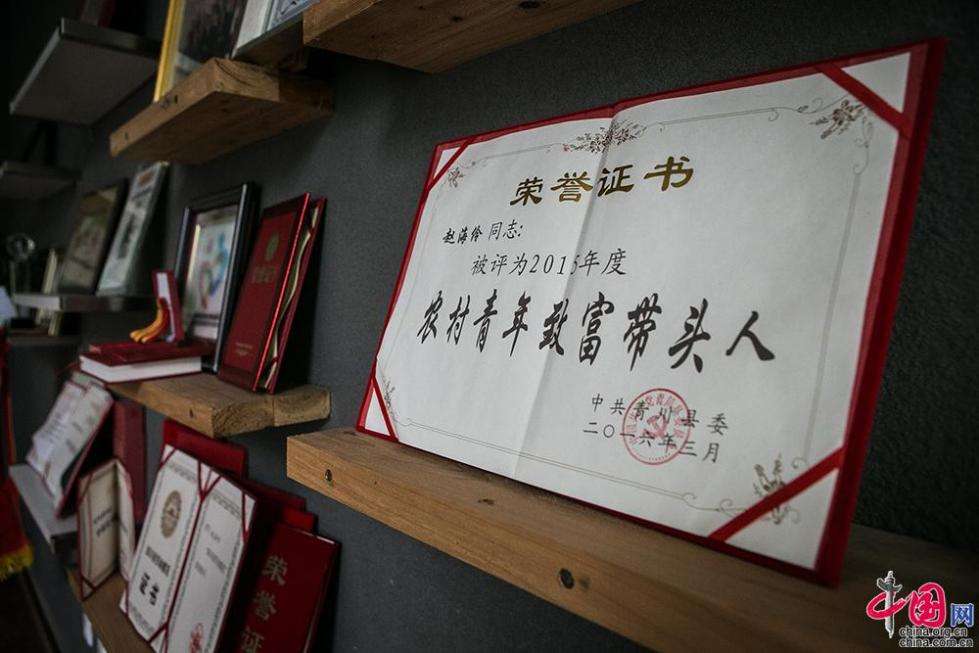 荣誉证书
赵海伶 同志:
被评为2015年度
农村青年致富带头人
中共青川县委
二〇一六年三月
证书
荣誉证
中国网
china.org.cn
china.com.cn